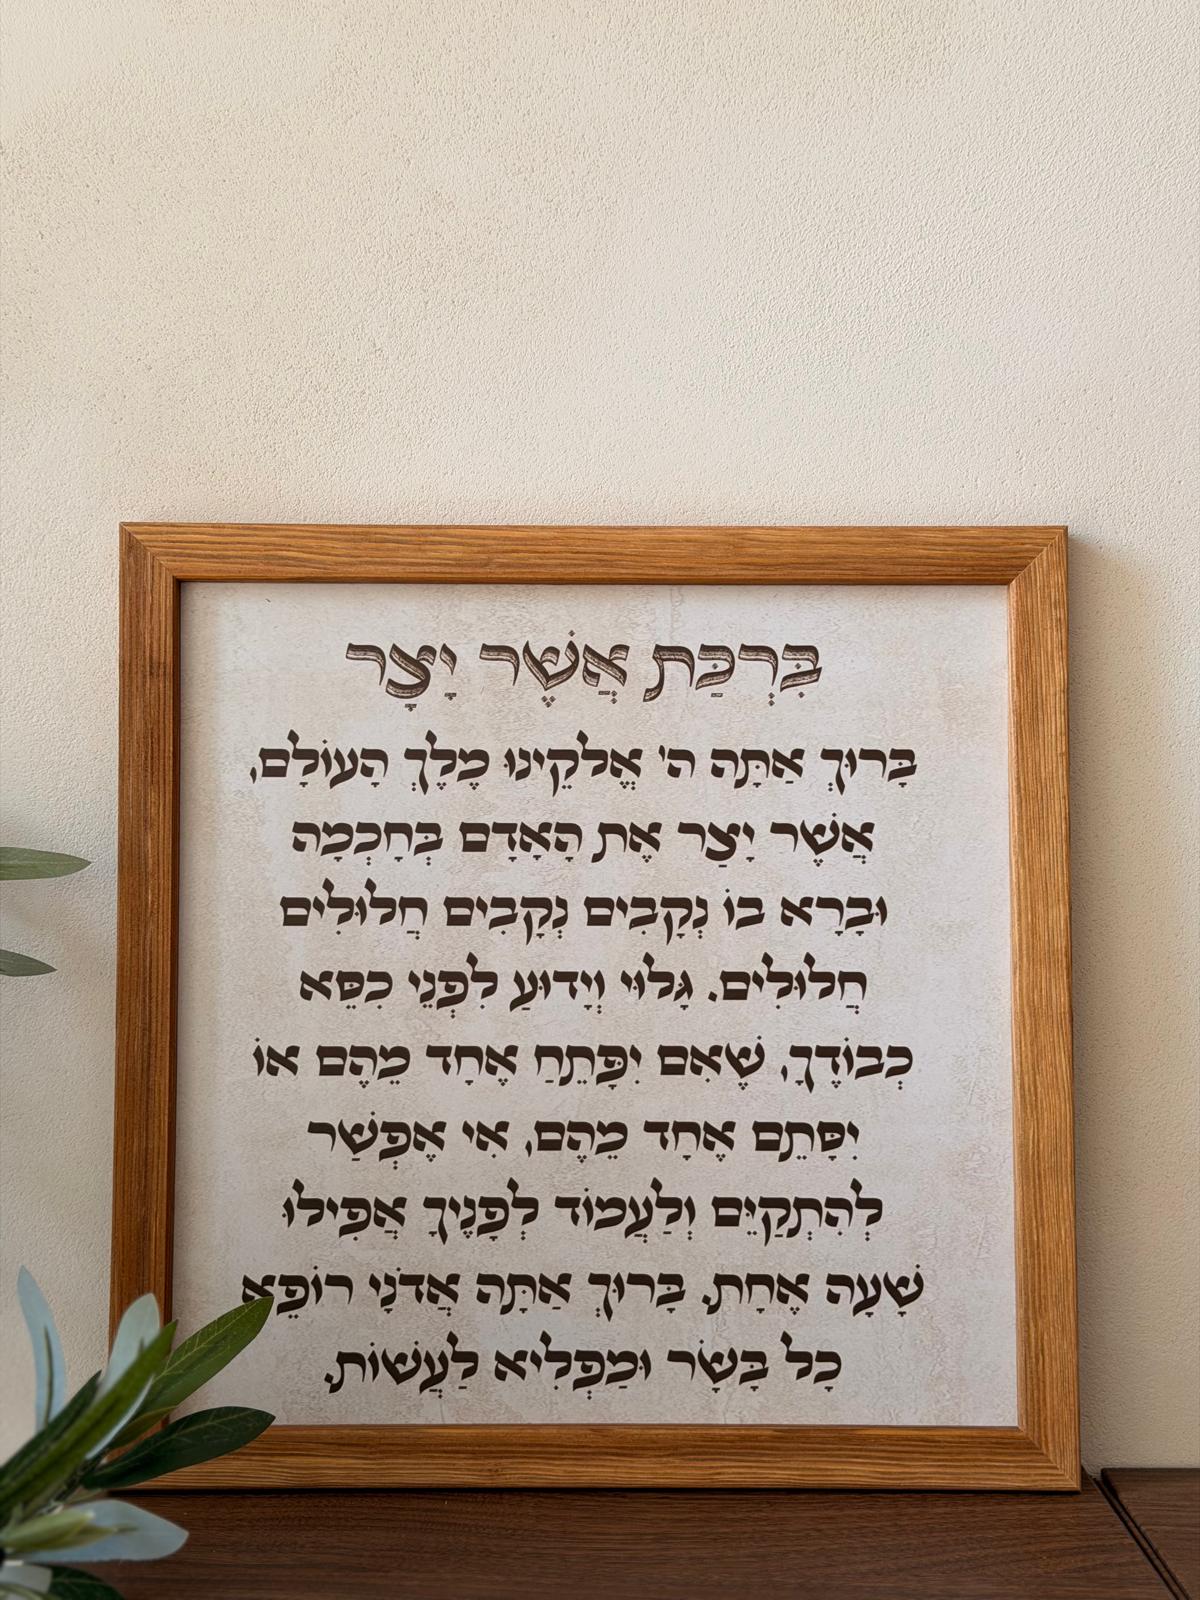 בִּרְכַּת אֲשֶׁר יָצָר
בָּרוּךְ אַתָּה ה' אֱלֹקֵינוּ מֶלֶךְ הָעוֹלָם,
אֲשֶׁר יָצַר אֶת הָאָדָם בְּחָכְמָה
וּבָרָא בוֹ נְקָבִים נְקָבִים חֲלוּלִים
חֲלוּלִים. גָּלוּי וְיָדוּעַ לִפְנֵי כִסֵּא
כְבוֹדֶךָ, שֶׁאִם יִפָּתֵחַ אֶחָד מֵהֶם אוֹ
יִסָּתֵם אֶחָד מֵהֶם, אִי אֶפְשַׁר
לְהִתְקַיֵּם וְלַעֲמוֹד לְפָנֶיךָ אֲפִילוּ
שָׁעָה אֶחָת. בָּרוּךְ אַתָּה אֲדֹנָי רוֹפֵא
כָל בָּשָׂר וּמַפְלִיא לַעֲשׂוֹת.